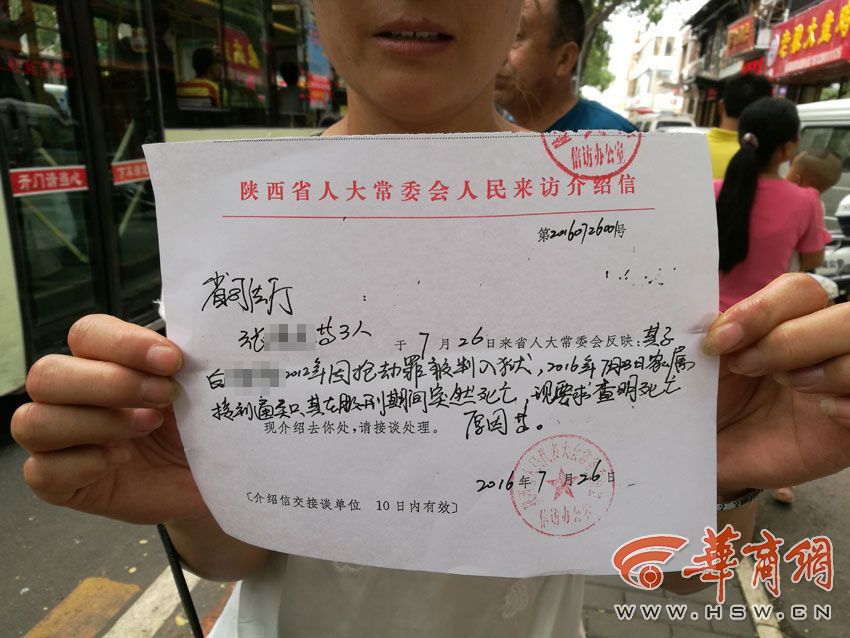 信访办公室
陕西省人大常委会人民来访介绍信
第20160726001号
省司法厅
张 等3人 于 7 月 26 日来省人大常委会反映：其子
白 2012年因抢劫罪被判入狱，2016年7月 日家属
接到通知其在服刑期间突然死亡，现要求查明死亡
原因等。
现介绍去你处，请接谈处理。
2016 年 7 月 26 日
信访办公室
〔介绍信交接谈单位 10日内有效〕
心当请门开
華商網
WWW.HSW.CN